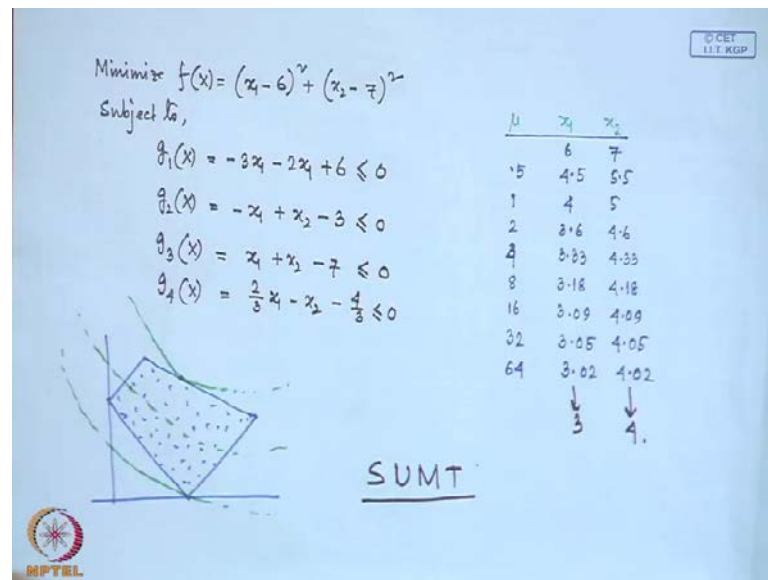 © CET
I.I.T. KGP
Minimize f(x) = (x₁ - 6)² + (x₂ - 7)²
Subject to,
g₁(x) = -3x₁ - 2x₁ + 6 ≤ 0
g₂(x) = -x₁ + x₂ - 3 ≤ 0
g₃(x) = x₁ + x₂ - 7 ≤ 0
g₄(x) = 2/3 x₁ - x₂ - 4/3 ≤ 0
μ x₁ x₂
6 7
.5 4.5 5.5
1 4 5
2 3.6 4.6
4 3.33 4.33
8 3.18 4.18
16 3.09 4.09
32 3.05 4.05
64 3.02 4.02
↓ ↓
3 4.
SUMT
NPTEL